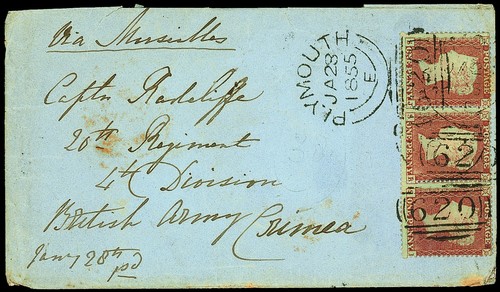 Via Marseilles
Captn Radcliffe
20th Regiment
4th Division
British Army
Crimea
Jany 28th
pd
PLYMOUTH
JA 28
1855
E
62
620